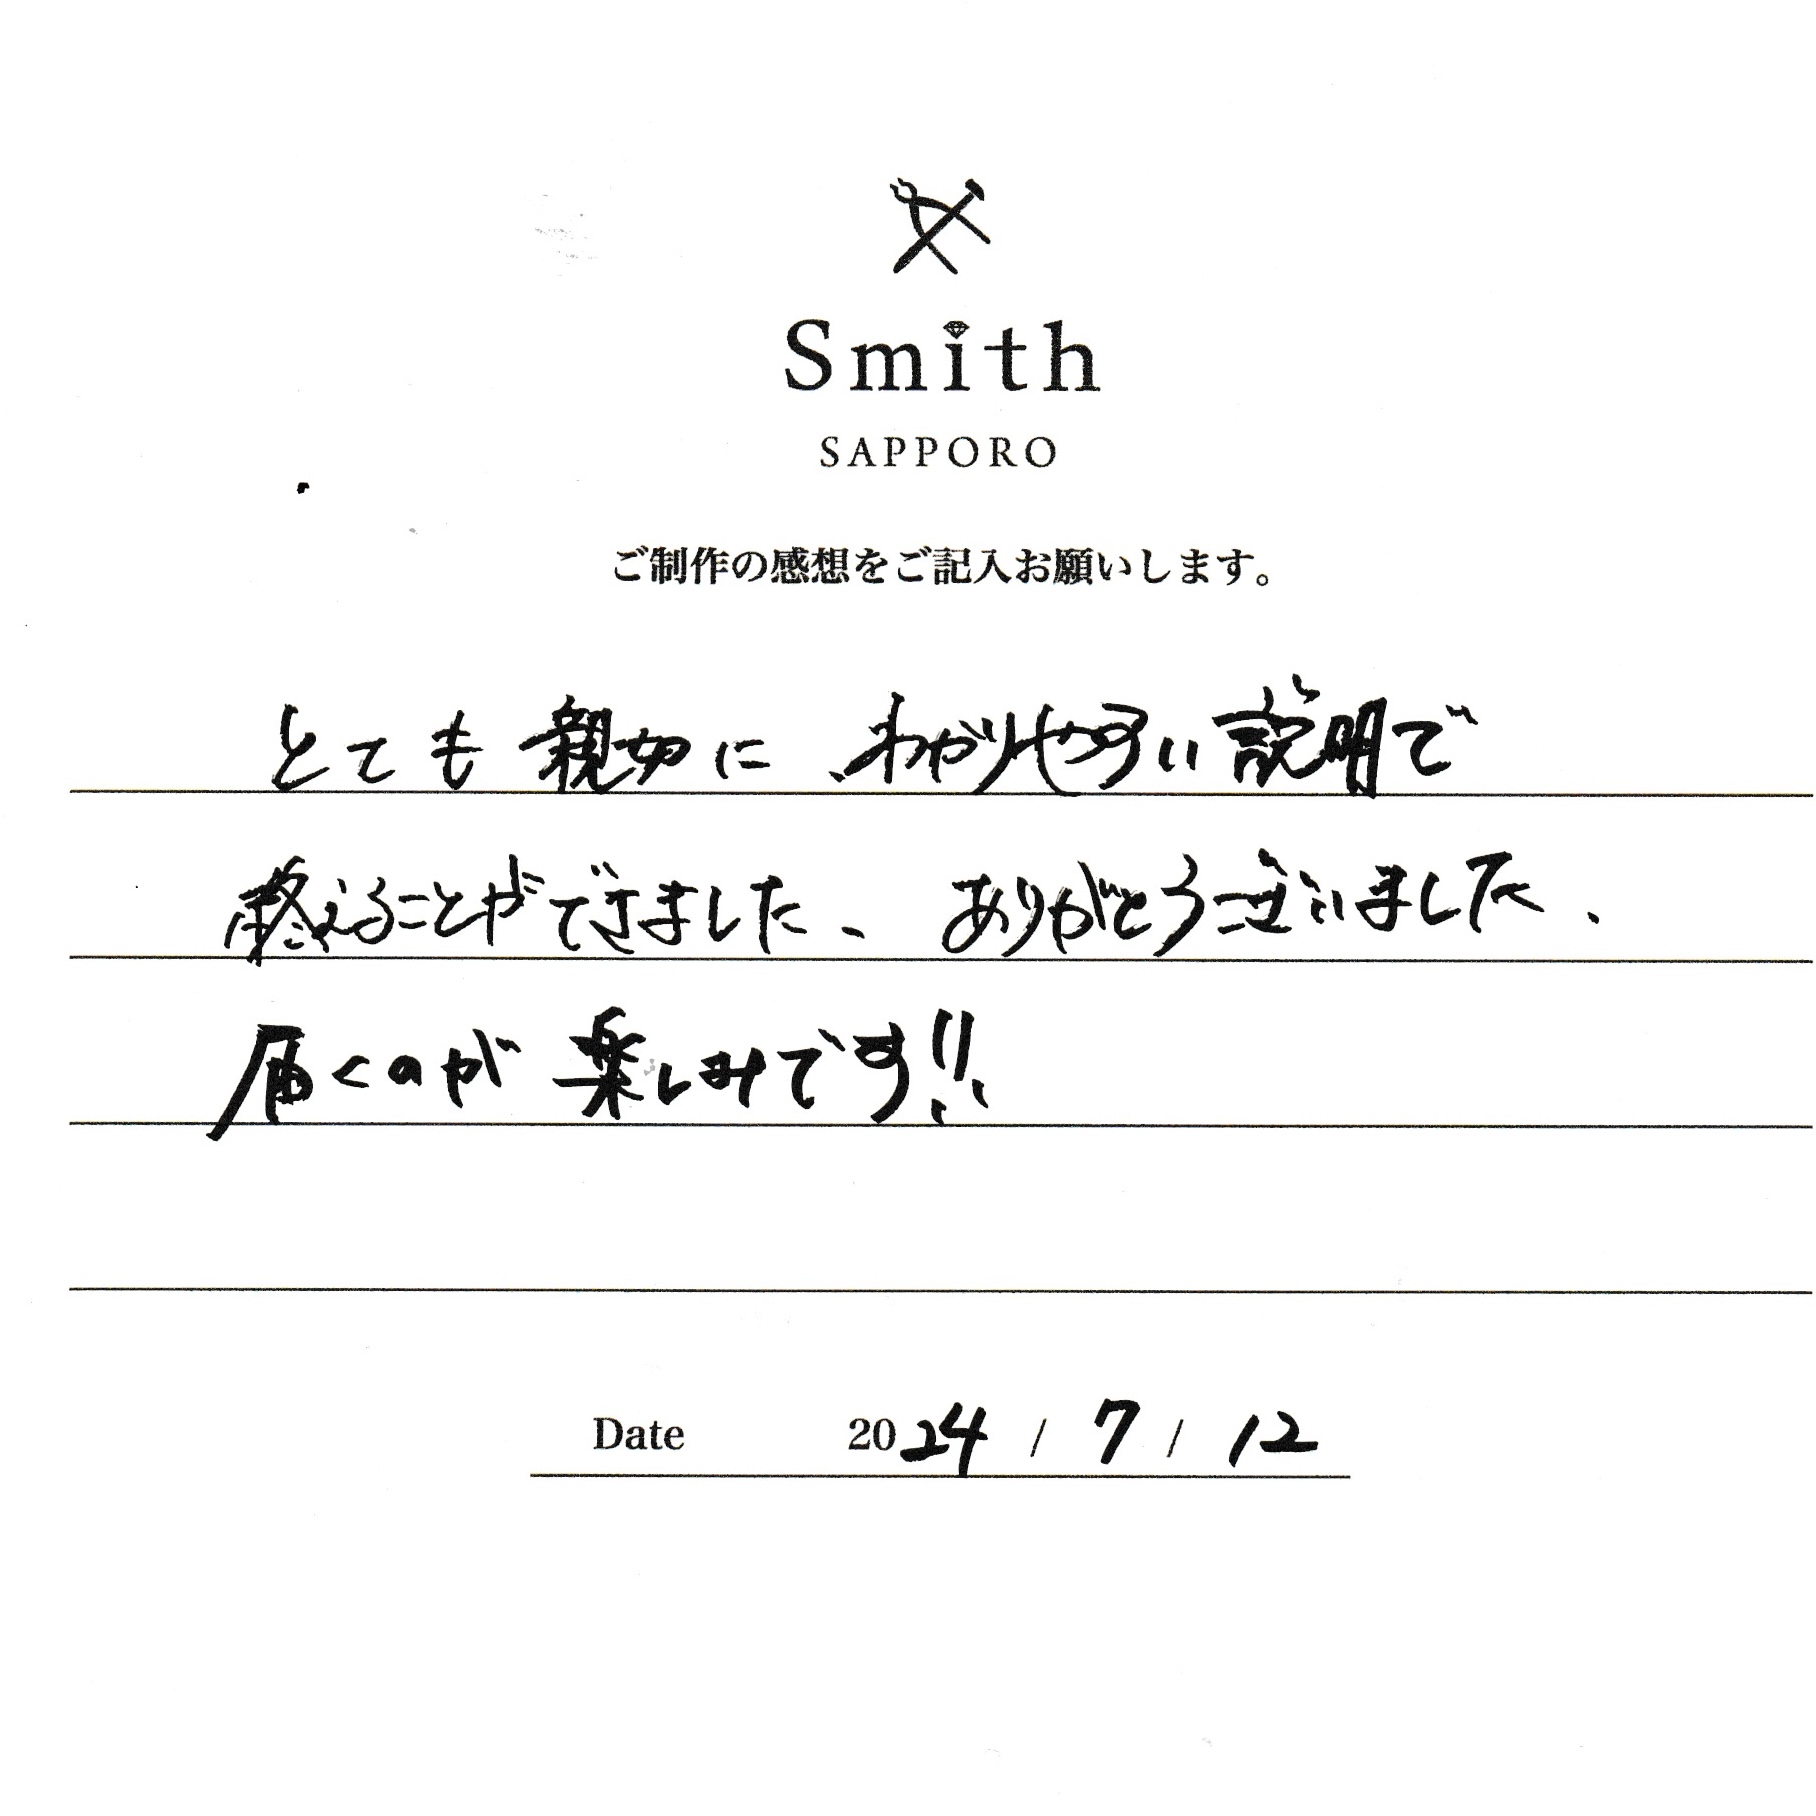 Smith
SAPPORO
ご制作の感想をご記入お願いします。
とても親切に、わかりやすい説明で
終えることができました、ありがとうございました、
届くのが楽しみです!!
Date 2024 / 7 / 12